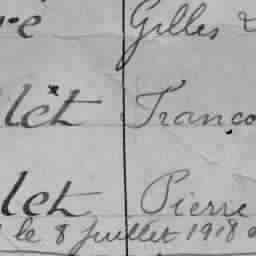 Gilles &
let Franço
let Pierre
le 8 Juillet 1918